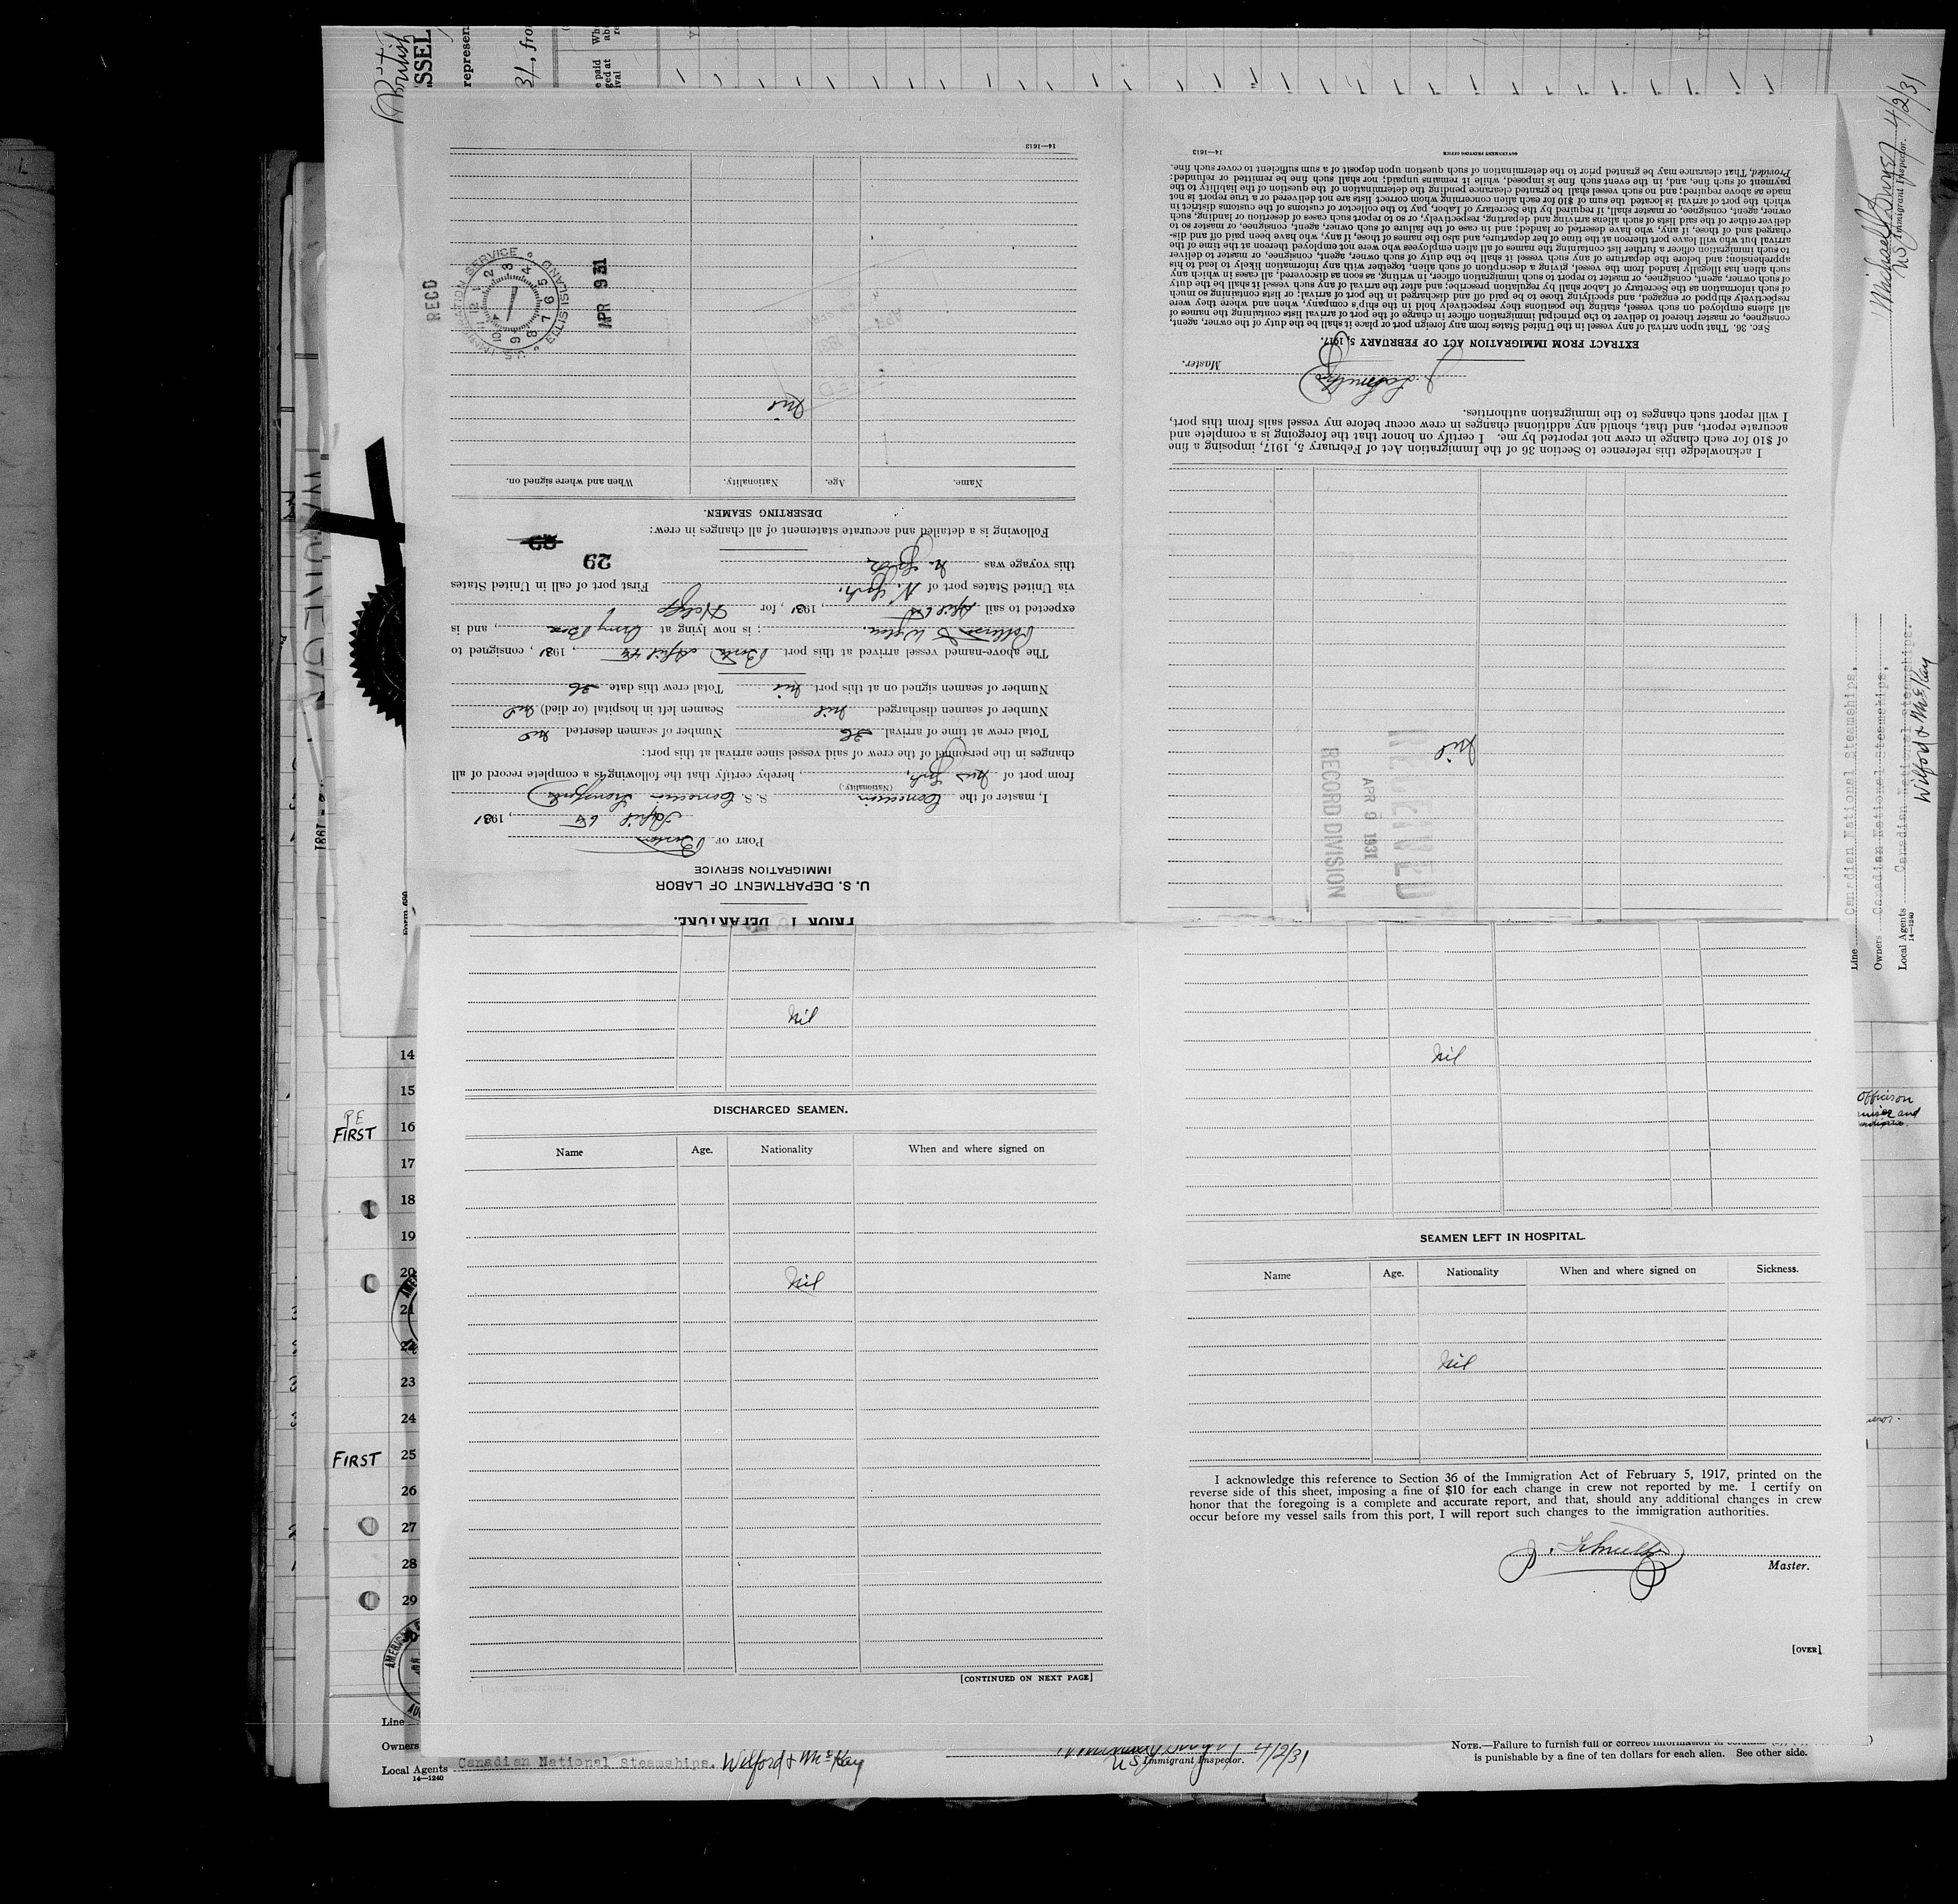 PRIOR TO DEPARTURE.
U. S. DEPARTMENT OF LABOR
IMMIGRATION SERVICE
PORT OF Boston
April 6th, 1931
I, master of the S. S. Canadian
(Nationality.)
from port of New York, hereby certify that the following is a complete record of all
changes in the personnel of the crew of said vessel since arrival at this port:
Total crew at time of arrival 36 Number of seamen deserted nil
Number of seamen discharged nil Seamen left in hospital (or died) nil
Number of seamen signed on at this port nil Total crew this date 36
The above-named vessel arrived at this port Boston April 4th, 1931, consigned to
; is now lying at Army Base, and is
expected to sail April 6th, 1931, for Halifax
via United States port of N. York. First port of call in United States
this voyage was N. York
29
Following is a detailed and accurate statement of all changes in crew:
DESERTING SEAMEN.
Name. Age. Nationality. When and where signed on.
Nil
RECD
U. S. IMMIGRATION SERVICE ELLIS ISLAND
APR 9 31
14—1613
RECEIVED
APR 9 1931
RECORD DIVISION
Nil
I acknowledge this reference to Section 36 of the Immigration Act of February 5, 1917, imposing a fine
of $10 for each change in crew not reported by me. I certify on honor that the foregoing is a complete and
accurate report, and that, should any additional changes in crew occur before my vessel sails from this port,
I will report such changes to the immigration authorities.
Master.
EXTRACT FROM IMMIGRATION ACT OF FEBRUARY 5, 1917.
SEC. 36. That upon arrival of any vessel in the United States from any foreign port or place it shall be the duty of the owner, agent,
consignee, or master thereof to deliver to the principal immigration officer in charge of the port of arrival lists containing the names of
all aliens employed on such vessel, stating the positions they respectively hold in the ship's company, when and where they were
respectively shipped or engaged, and specifying those to be paid off and discharged in the port of arrival; or lists containing so much
of such information as the Secretary of Labor shall by regulation prescribe; and after the arrival of any such vessel it shall be the duty
of such owner, agent, consignee, or master to report to such immigration officer, in writing, as soon as discovered, all cases in which any
such alien has illegally landed from the vessel, giving a description of such alien, together with any information likely to lead to his
apprehension; and before the departure of any such vessel it shall be the duty of such owner, agent, consignee, or master to deliver
to such immigration officer a further list containing the names of all alien employees who were not employed thereon at the time of the
arrival but who will leave port thereon at the time of her departure, and also the names of those, if any, who have been paid off and dis-
charged and of those, if any, who have deserted or landed; and in case of the failure of such owner, agent, consignee, or master so to
deliver either of the said lists of such aliens arriving and departing, respectively, or so to report such cases of desertion or landing, such
owner, agent, consignee, or master shall, if required by the Secretary of Labor, pay to the collector of customs of the customs district in
which the port of arrival is located the sum of $10 for each alien concerning whom correct lists are not delivered or a true report is not
made as above required; and no such vessel shall be granted clearance pending the determination of the question of the liability to the
payment of such fine, and, in the event such fine is imposed, while it remains unpaid; nor shall such fine be remitted or refunded:
Provided, That clearance may be granted prior to the determination of such question upon deposit of a sum sufficient to cover such fine.
14—1613 GOVERNMENT PRINTING OFFICE
British
represen
31, fro
4/2/31
U.S. Immigrant Inspector.
Line Canadian National Steamships.
Owners Canadian National Steamships.
Local Agents Canadian National Steamships. Wilford & McKay
14—1240
Nil
DISCHARGED SEAMEN.
Name Age. Nationality When and where signed on
Nil
[CONTINUED ON NEXT PAGE]
Nil
SEAMEN LEFT IN HOSPITAL.
Name Age. Nationality When and where signed on Sickness.
Nil
I acknowledge this reference to Section 36 of the Immigration Act of February 5, 1917, printed on the
reverse side of this sheet, imposing a fine of $10 for each change in crew not reported by me. I certify on
honor that the foregoing is a complete and accurate report, and that, should any additional changes in crew
occur before my vessel sails from this port, I will report such changes to the immigration authorities.
Master.
[OVER]
14
15
PE
FIRST 16
17
18
19
20
21
22
23
24
FIRST 25
26
27
28
29
Line
Owners
Local Agents Canadian National Steamships. Wilford & McKay
14—1240
U.S. Immigrant Inspector. 4/2/31
NOTE.—Failure to furnish full or correct information in
is punishable by a fine of ten dollars for each alien. See other side.